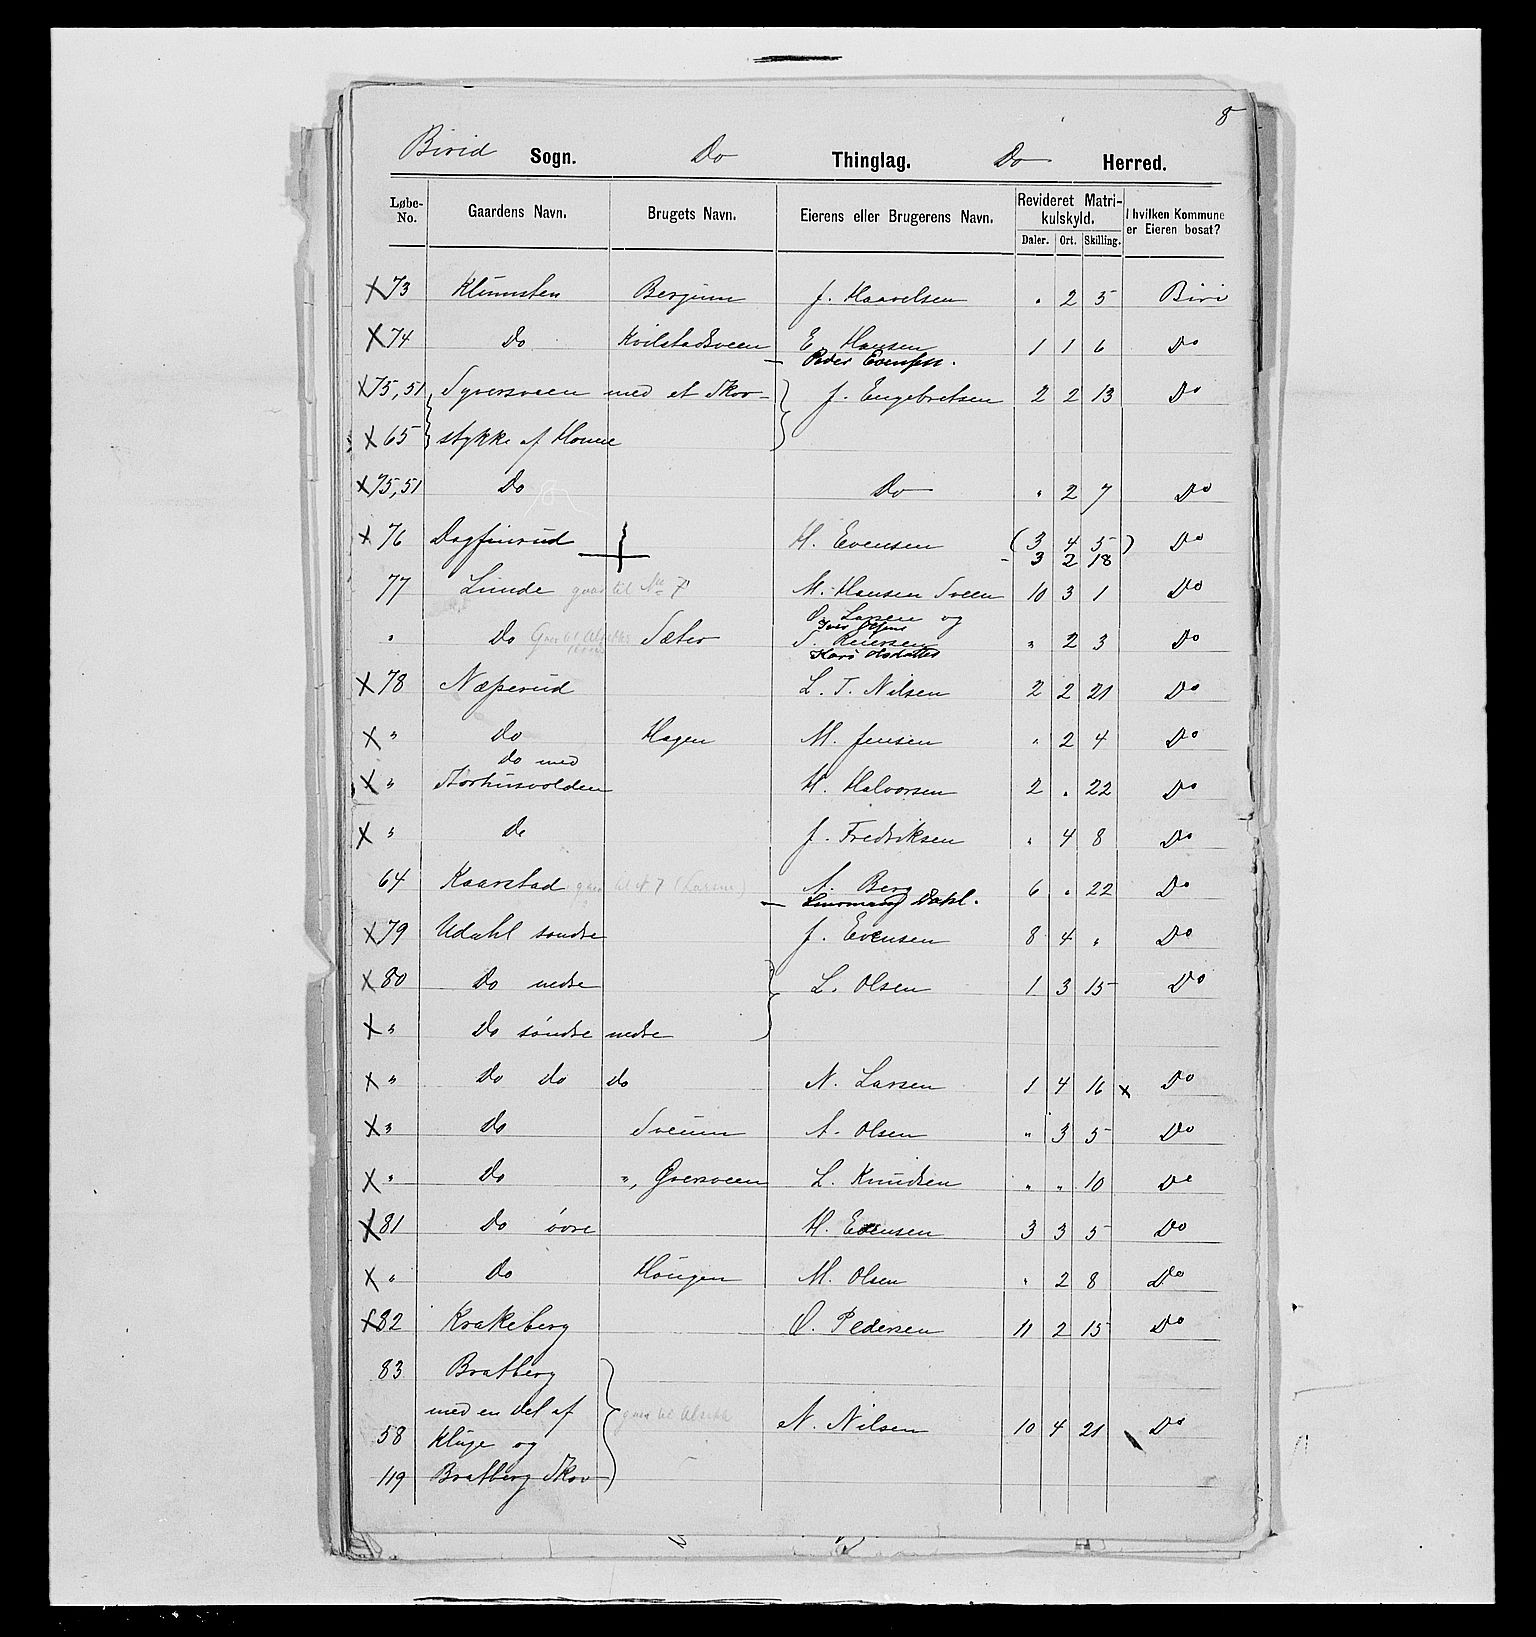 8
Birid Sogn. Do Thinglag. Do Herred.
Løbe-No. Gaardens Navn. Brugets Navn. Eierens eller Brugerens Navn. Revideret Matrikulskyld. I hvilken Kommune er Eieren bosat?
Daler. Ort. Skilling.
X 73 Klumsten Berjum J. Haavelsen " 2 5 Biri
X 74 Do Kvilstadsveen E. Hansen 1 1 6 Do
— Peder Evensen.
X 75, 51 Syversveen med et Skov- J. Engebretsen 2 2 13 Do
X 65 stykke af Honne
X 75, 51 Do Do " 2 7 Do
X 76 Dagfinrud H. Evensen (3 4 5) Do
- 3 2 18
77 Linde gaar til No 7 M. Hansen Sveen 10 3 1 Do
O. Larsen og
" Do Sæter S. Reiersen " 2 3 Do
Kari Olsdatter
X 78 Næperud L. T. Nilsen 2 2 21 Do
X " Do Hagen M. Jensen " 2 4 Do
Do med
X " Størhusvolden H. Halvorsen 2 " 22 Do
X " Do J. Fredriksen " 4 8 Do
64 Kaarstad gaar til No 7 (Larsen) A. Berg 6 " 22 Do
— Dahl.
X 79 Udahl søndre J. Evensen 8 4 " Do
X 80 Do nedre L. Olsen 1 3 15 Do
X " Do søndre nedre
X " Do do do N. Larsen 1 4 16 x Do
X " Do Sveum A. Olsen " 3 5 Do
X " Do ", Øversveen L. Knudsen " " 10 Do
X 81 Do øvre H. Evensen 3 3 5 Do
X " Do Haugen M. Olsen " 2 8 Do
X 82 Krakeberg O. Pedersen 11 2 15 Do
83 Bratberg
med en del af gaar til N. Nilsen 10 4 21 Do
58 Kluge og
119 Bratberg Skov